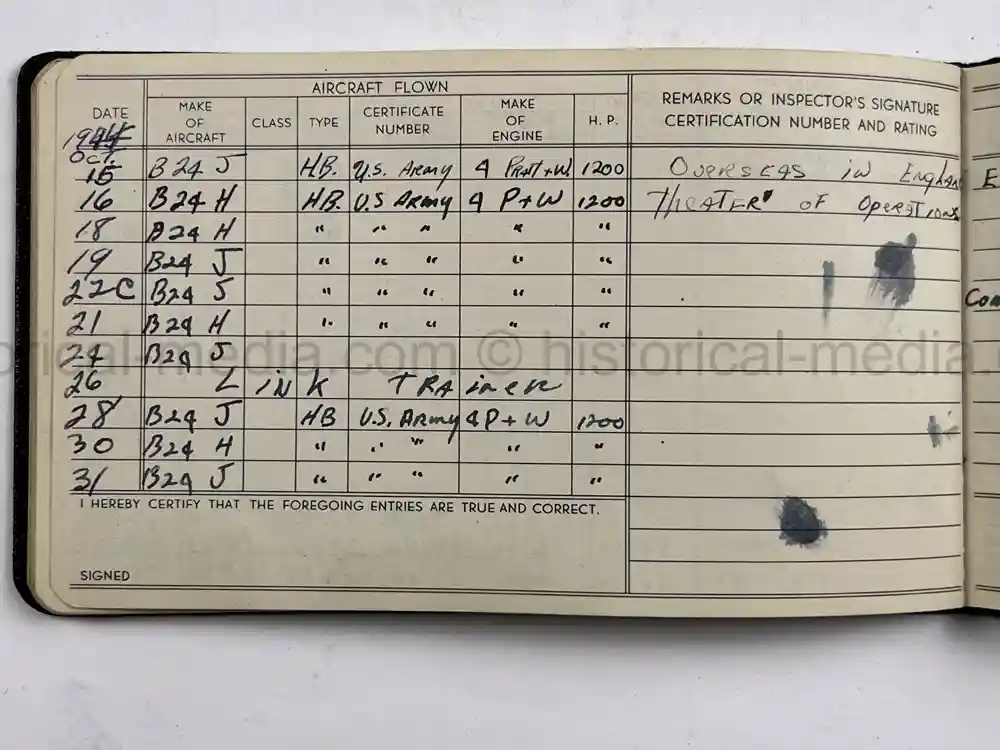 AIRCRAFT FLOWN
DATE MAKE OF AIRCRAFT CLASS TYPE CERTIFICATE NUMBER MAKE OF ENGINE H. P. REMARKS OR INSPECTOR'S SIGNATURE CERTIFICATION NUMBER AND RATING
1944
OCT. 15 B24 J HB. U.S. Army 4 Pratt+W. 1200 Overseas in England
16 B24 H HB. U.S Army 4 P+W 1200 Theater of Operations
18 B24 H " " " " "
19 B24 J " " " " "
22C B24 J " " " " "
21 B24 H " " " " "
24 B24 J
26 Link Trainer
28 B24 J HB U.S. Army 4 P+W 1200
30 B24 H " " " " "
31 B24 J " " " " "
I HEREBY CERTIFY THAT THE FOREGOING ENTRIES ARE TRUE AND CORRECT.
SIGNED
E
Com
orical-media.com © historical-media.